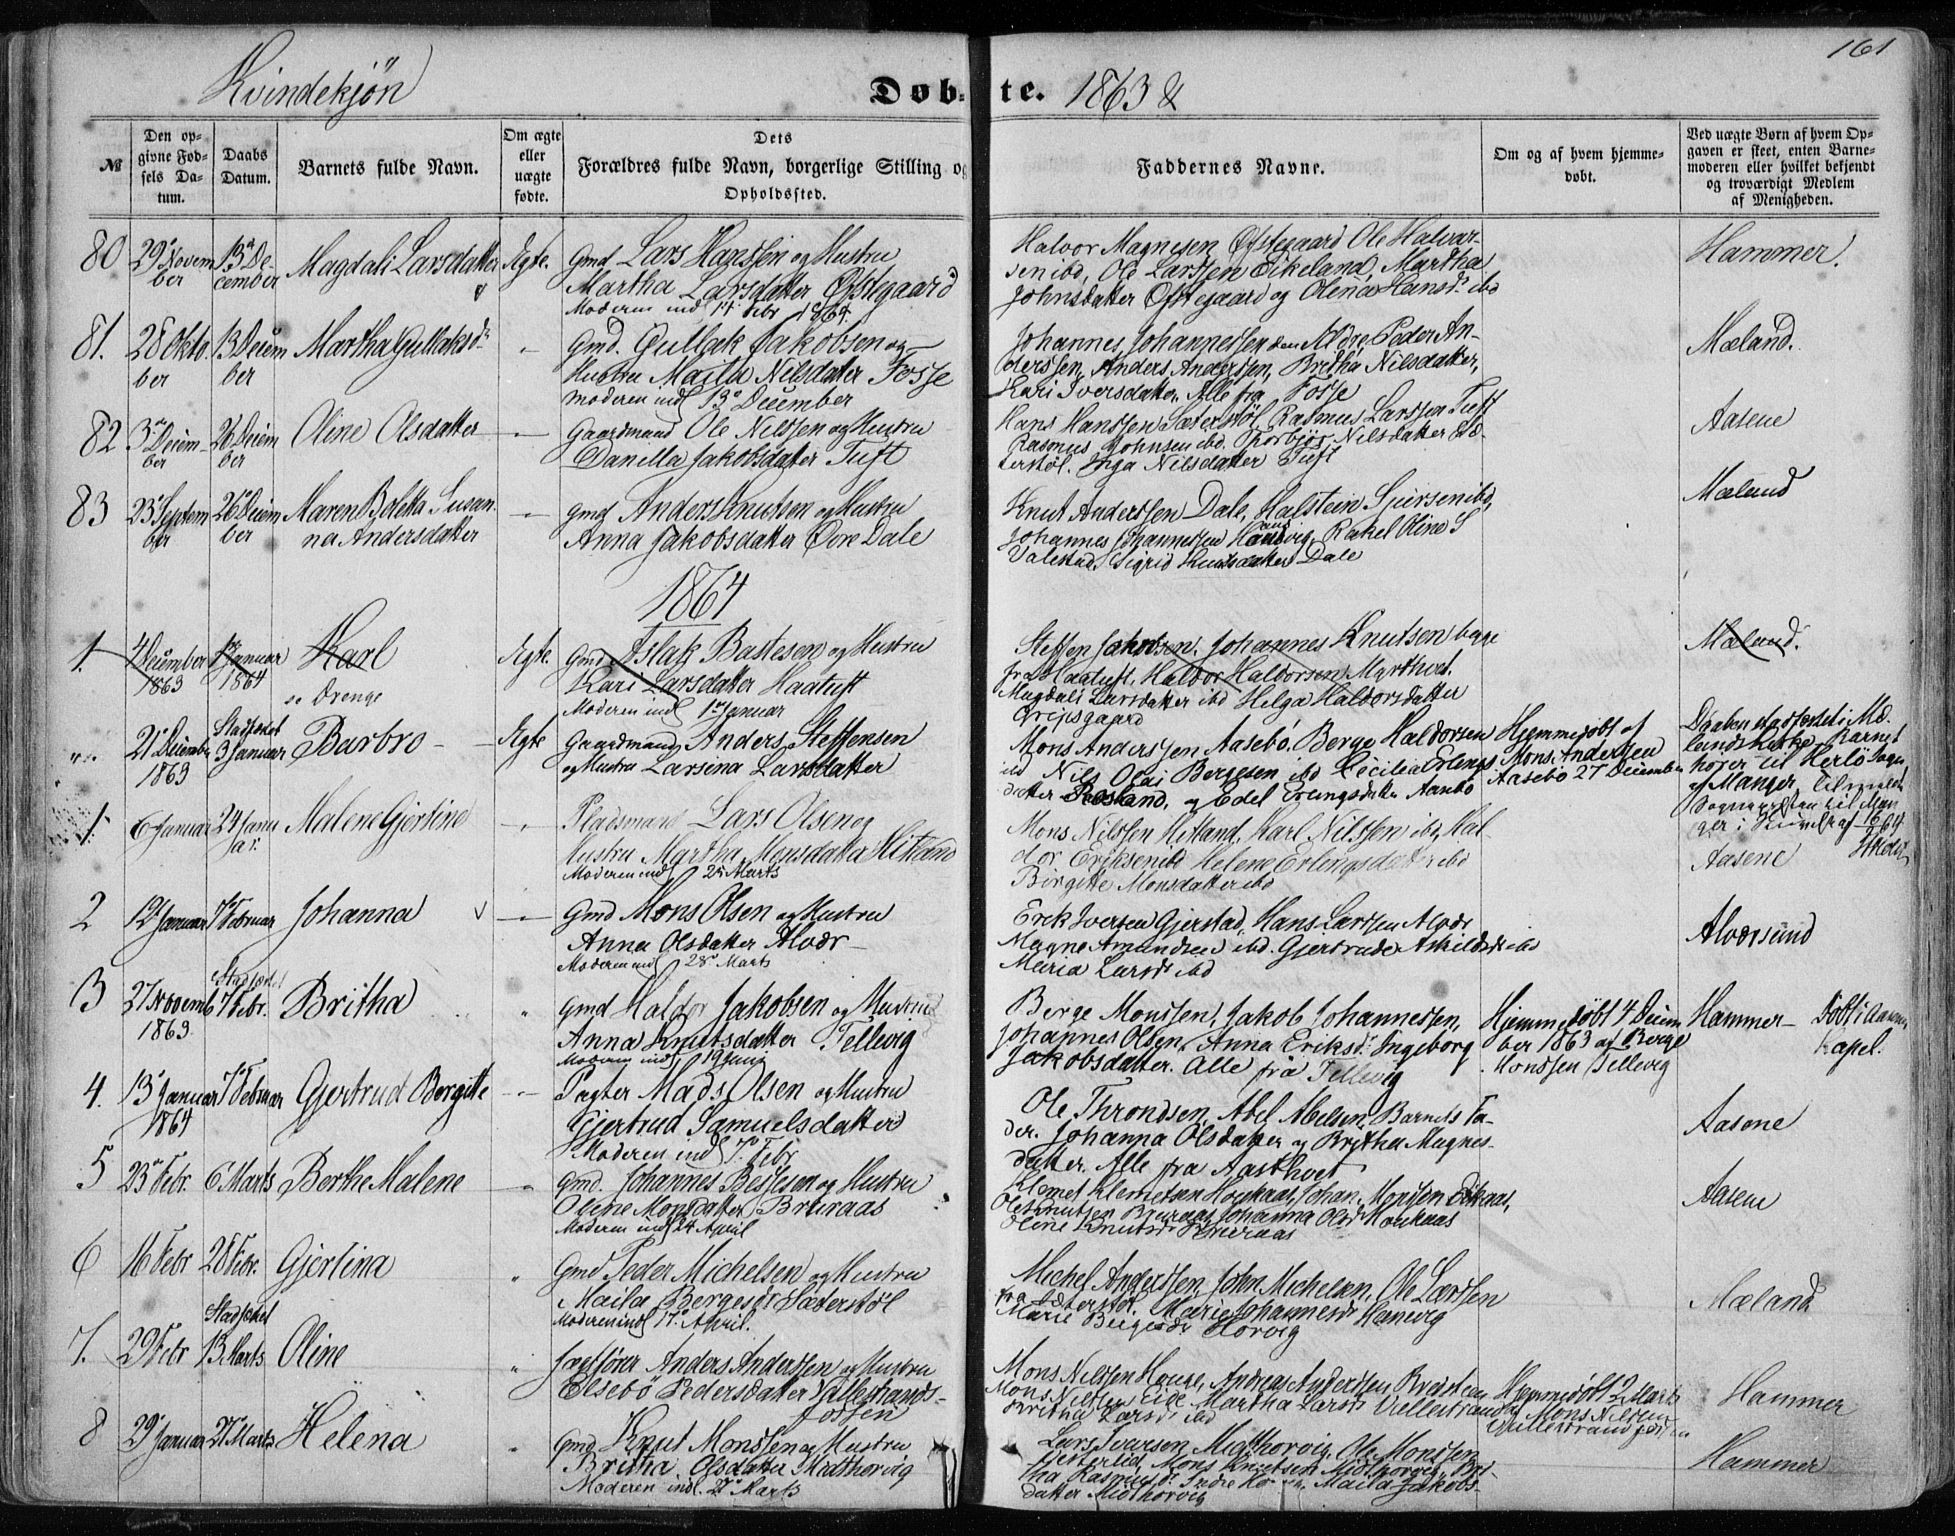 161
Kvindekjön
Døb-te. 1863 &
№
Den opgivne Fødsels Datum.
Daabs Datum.
Barnets fulde Navn.
Om ægte eller uægte fødte.
Dets Forældres fulde Navn, borgerlige Stilling og Opholdssted.
Faddernes Navne.
Om og af hvem hjemmedøbt.
Ved uægte Børn af hvem Opgaven er skeet, enten Barnemoderen eller hvilket bekjendt og troværdigt Medlem af Menigheden.
80 29 Novem 13 De- Magdali Larsdatter Ægte. Gmd Lars Hanssen og Hustru
ber cember Martha Larsdatter Øfstegaard
Moderen indl 14 Febr 1864.
Halvor Magnesen Øfstegaard Ole Halvar-
sen ibd, Ole Larssen Eikeland, Martha
Johnsdatter Øfstegaard og Olena Hansdr ibd
Hammer.
81. 28 Okto- 13 Decem Martha Gullaksdr Gmd. Gullak Jakobsen og
ber ber Hustru Maila Nilsdatter Fosse
Moderen indl 13 December
Johannes Johannessen den Ældre, Peder An-
derssen, Anders Anderssen, Britha Nilsdatter,
Kari Iversdatter. Alle fra Fosse
Mæland.
82 3 Decem- 26 Decem Oline Olsdatter Gaardmand Ole Nilssen og Hustru
ber ber Danilla Jakobsdatter Tuft
Hans Hanssen Sæterstöl, Rasmus Larssen Tuft
Rasmus Johnsen ibd. Thorbjör Nilsdatter Sæ-
terstöl. Inga Nilsdatter Tuft
Aasene
83 23 Septem 26 Decem Maren Boletta Susan- Gmd Anders Knutsen og Hustru
ber ber na Andersdatter Anna Jakobsdatter Övre Dale
Knut Anderssen Dale, Halstein Sjursen ibd,
Johannes Johannessen Hanevig, Rakel Oline S
Valestad, Sigrid Knutsdatter Dale
Mæland
1864
1. 4 December 1 Januar Karl Ægte. Gmd Aslak Bastesen og Hustru
1863 1864 se Drenge Kari Larsdatter Haatuft
Moderen indl 1 Januar
Steffen Jakobsen, Johannes Knutsen begge
fra Haatuft, Haldor Haldorsen Marthvet.
Magdali Larsdatter ibd Helga Haldorsdatter
Gripsgaard
Mæland.
21 December Stadfæstet 3 Januar Barbro Ægte Gaardmand Anders Steffensen
1863 og Hustru Larsina Larsdatter
Mons Anderssen Aasebö, Berge Haldorsen
ibd Nils Olai Bergesen ibd Cecilia Erlings
datter Rosland, og Edel Erlingsdatter Aasebö
Hjemmedöbt af
Mons Anderssen
Aasebö 27 December
Daaben stadfæstet i Mæ-
lands Kirke, Barnet
hörer til Herlö Sogn
af Manger, Tilmeldt
Sognepresten til Man-
ger i
1. 6 Januar 24 Janu Malene Gjertine Pladsmand Lars Olsen og
ar. Hustru Martha Monsdatter Hitland
Moderen indl 28 Marts
Mons Nilssen Hitland, Karl Nilssen ibd, Hal-
dor Eriksen ibd Helene Erlingsdatter ibd
Birgitte Monsdatter ibd
Aasene
2 12 Januar 7 Februar Johanna Gmd Mons Olsen og Hustru
Anna Olsdatter Alvær
Moderen indl 28 Marts
Erik Iversen Gjerstad, Hans Larssen Alvær
Magne Amundsen ibd. Gjertrude Askildsdr ibd
Maria Larsdr ibd
Alværsund
3 27 Novemb Stadfæstet 7 Febr. Britha Gmd Haldor Jakobsen og Hustru
1863 Anna Knutsdatter Tellevig
Moderen indl 19 Juni
Berge Monssen, Jakob Johannessen,
Johannes Olsen, Anna Eriksdr. Ingeborg
Jakobsdatter. Alle fra Tellevig
Hjemmedöbt 4 Decem
ber 1863 af Berge
Monssen Tellevig
Hammer Döbt i Aasene
Kapel.
4. 13 Januar 7 Februar Gjertrud Bergitte Pagter Mads Olsen og Hustru
1864 Gjertrud Samuelsdatter
Moderen indl 7 Febr
Ole Throndsen, Abel Abelsen, Barnets Fa-
der. Johanna Olsdatter og Brytha Magnes-
datter. Alle fra Aasthvet
Aasene
5 23 Febr. 6 Marts Berthe Malene Gmd. Johannes Bessesen og Hustru
Oline Monsdatter Bruraas
Moderen indl 24 April
Klemet Klemetsen Horkaas, Johan Monssen Eikaas,
Ole Knutsen Bruraas, Johanna Olsdr Horkaas
Oline Knutsdr Bruraas
Aasene
6 16 Febr 28 Febr. Gjertina Gmd Peder Michelsen og Hustru
Maila Bergesdr Sæterstöl
Moderen indl 17 April.
Michel Anderssen, John Michelsen, Ole Larssen
fra Sæterstöl, Marie Johannesdr Hanevig
Marie Bergesdr Horvig
Mæland
7. 29 Febr Stadfæstet 13 Marts Oline Anders Anderssen og Hustru
Elsebö Pedersdatter Vallestrands-
fossen
Mons Nilssen Hauge, Andreas Anderssen Bredsteen
Mons Nilssen Eide, Martha Larsdr Vallestrand
Britha Larsdr ibd
Hjemmedöbt 2 Marts
af Mons Nilssen
Vallestrandfossen
Hammer
8 29 Januar 27 Marts Helena Gmd Knut Monssen og Hustru
Britha Olsdatter Midthorvig
Moderen indl. 27 Marts
Lars Iversen Midthorvig, Ole Monssen
Mons Knutsen Midthorvig, Bri-
tha Rasmusdr Indre Ho Maila Jakobs-
datter Midthorvig
Hammer